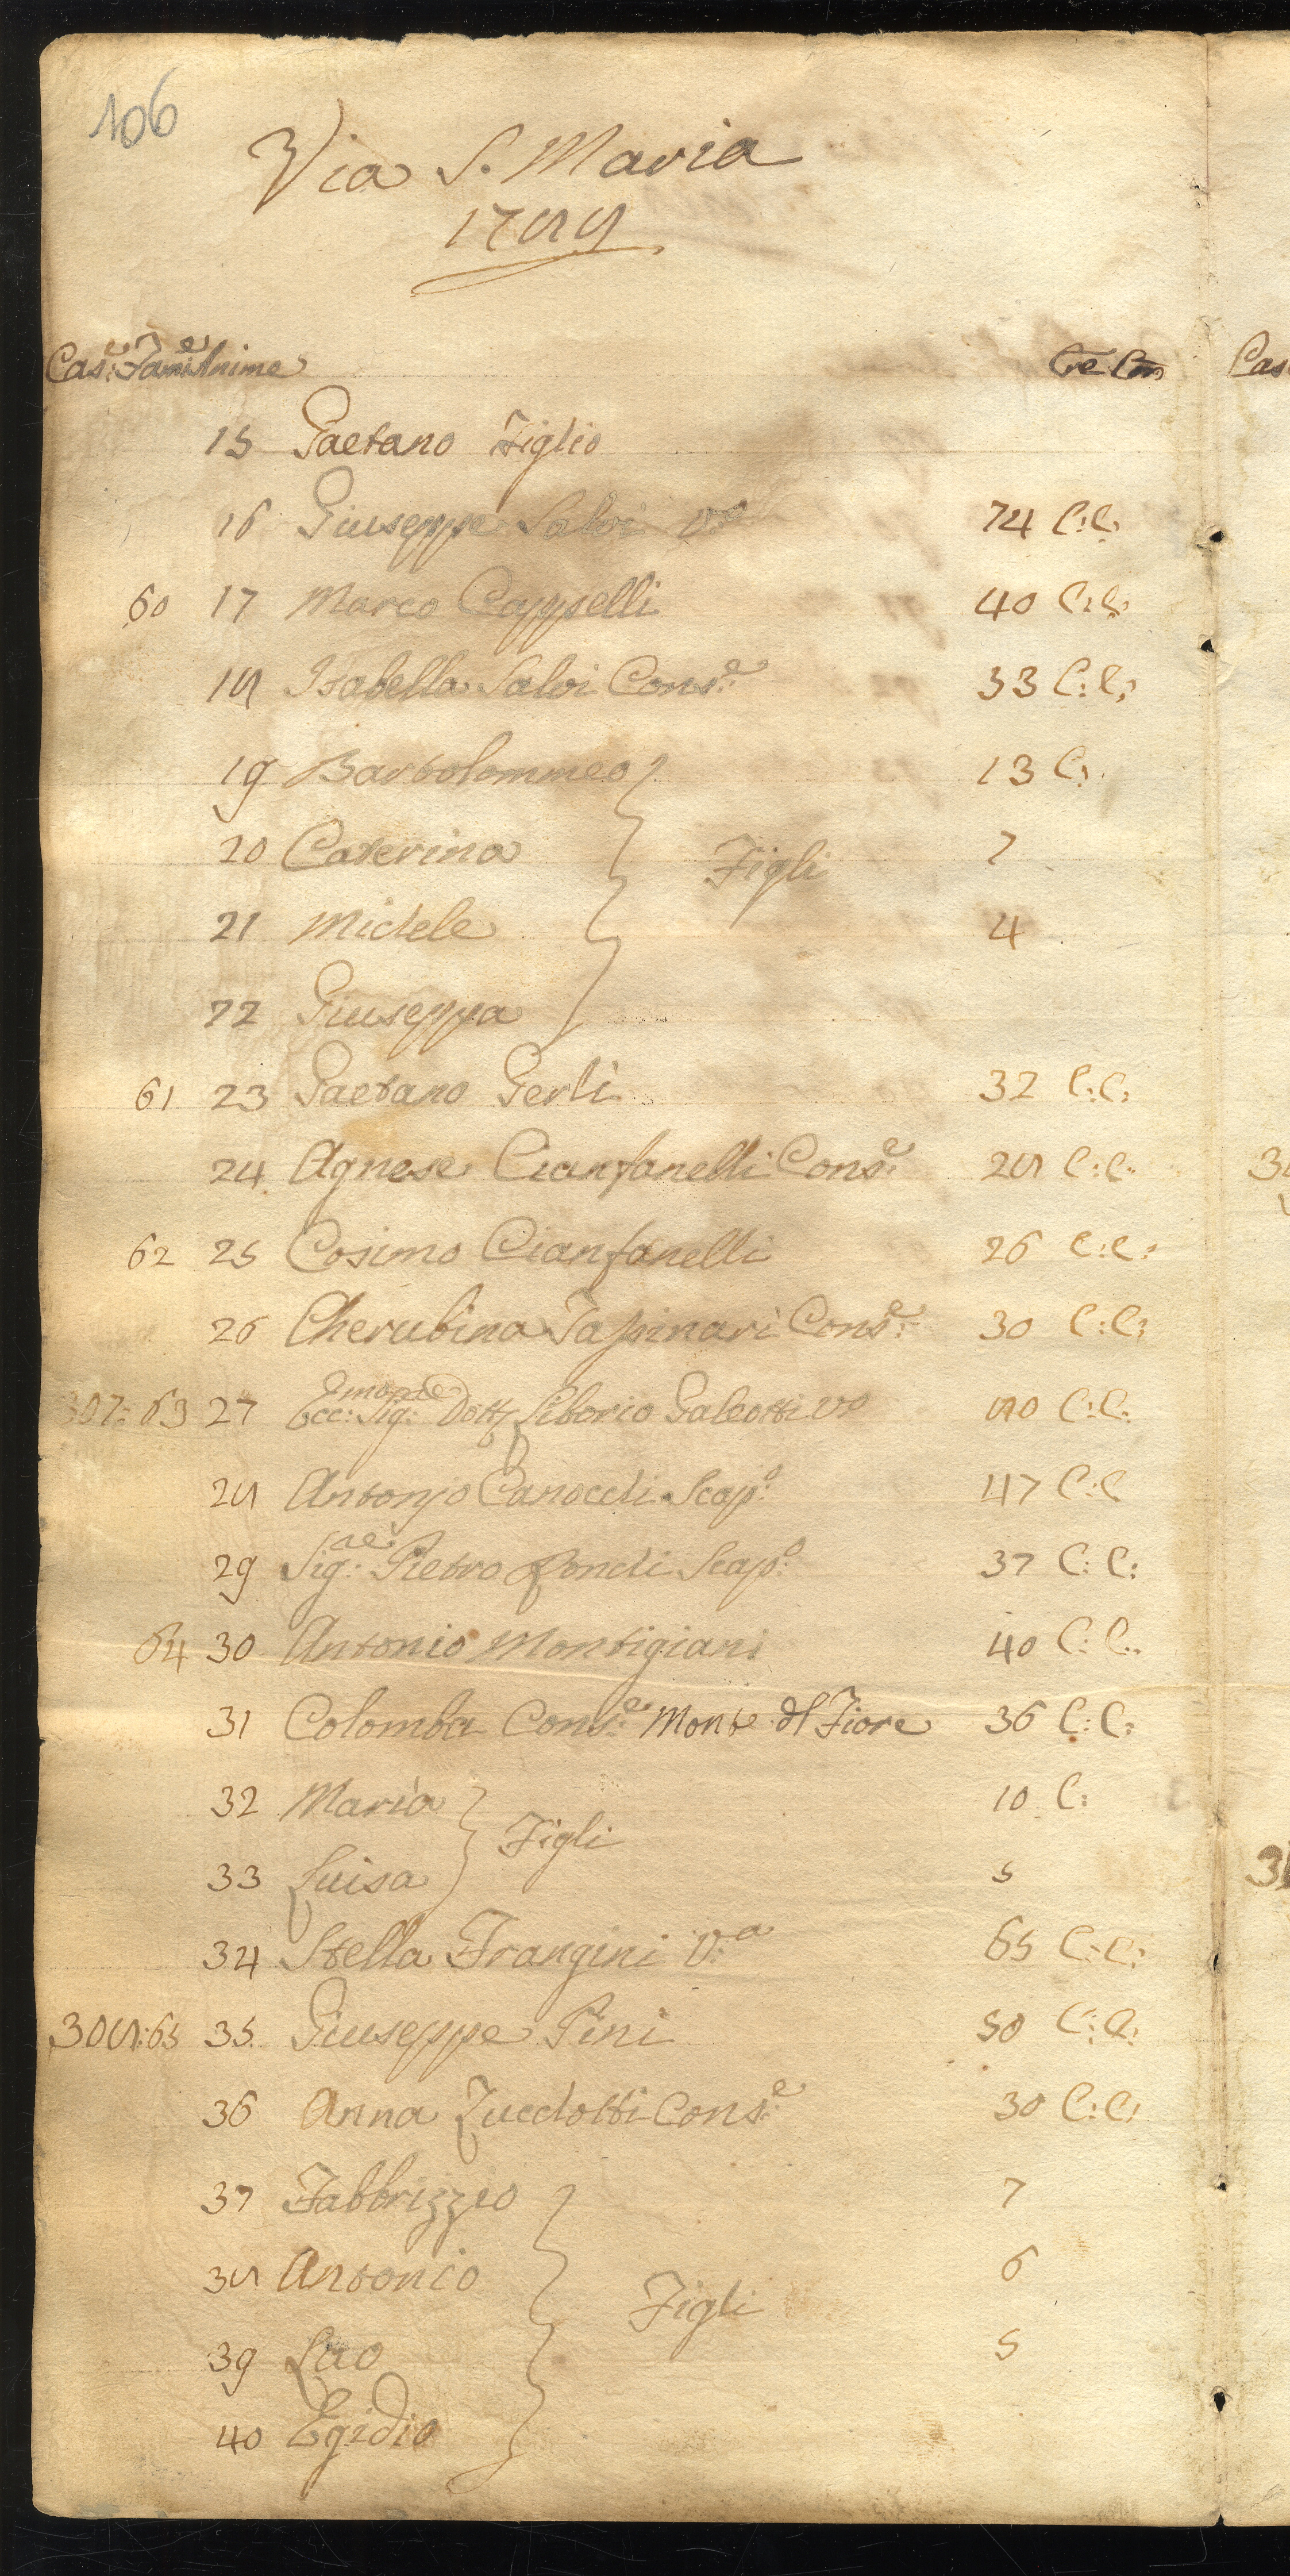 106
Via S. Maria
1789
Cas:e Fami:e Anime
15 Gaetano Figlio
16 Giuseppe Salvi v:o 74 C:C:
60 17 Marco Cappelli 40 C:C:
18 Isabella Salvi Cons:e 33 C:C:
19 Bartolommeo 13 C:
20 Caterina Figli 7
21 Michele 4
22 Giuseppa
61 23 Gaetano Gerli 32 C:C:
24 Agnese Cianfanelli Cons:e 28 C:C:
62 25 Cosimo Cianfanelli 26 C:C:
26 Cherubina Cons:e 30 C:C:
307: 63 27 Ecc: Sig: Dott Liborio Galeotti vo 80 C:C:
28 Antonio Scap:o 47 C:C
29 Sig:re Pietro Scap:o 37 C: C:
64 30 Antonio Montigiani 40 C: C:
31 Colomba Cons:e Mont dl Fiore 36 C: C:
32 Maria 10 C:
Figli
33 Luisa 5
34 Stella Frangini V:a 65 C:C:
308: 65 35 Giuseppe Pini 50 C:C:
36 Anna Zucchotti Cons:e 30 C:C:
37 Fabbrizzio 7
38 Antonio 6
Figli
39 5
40 Egidio